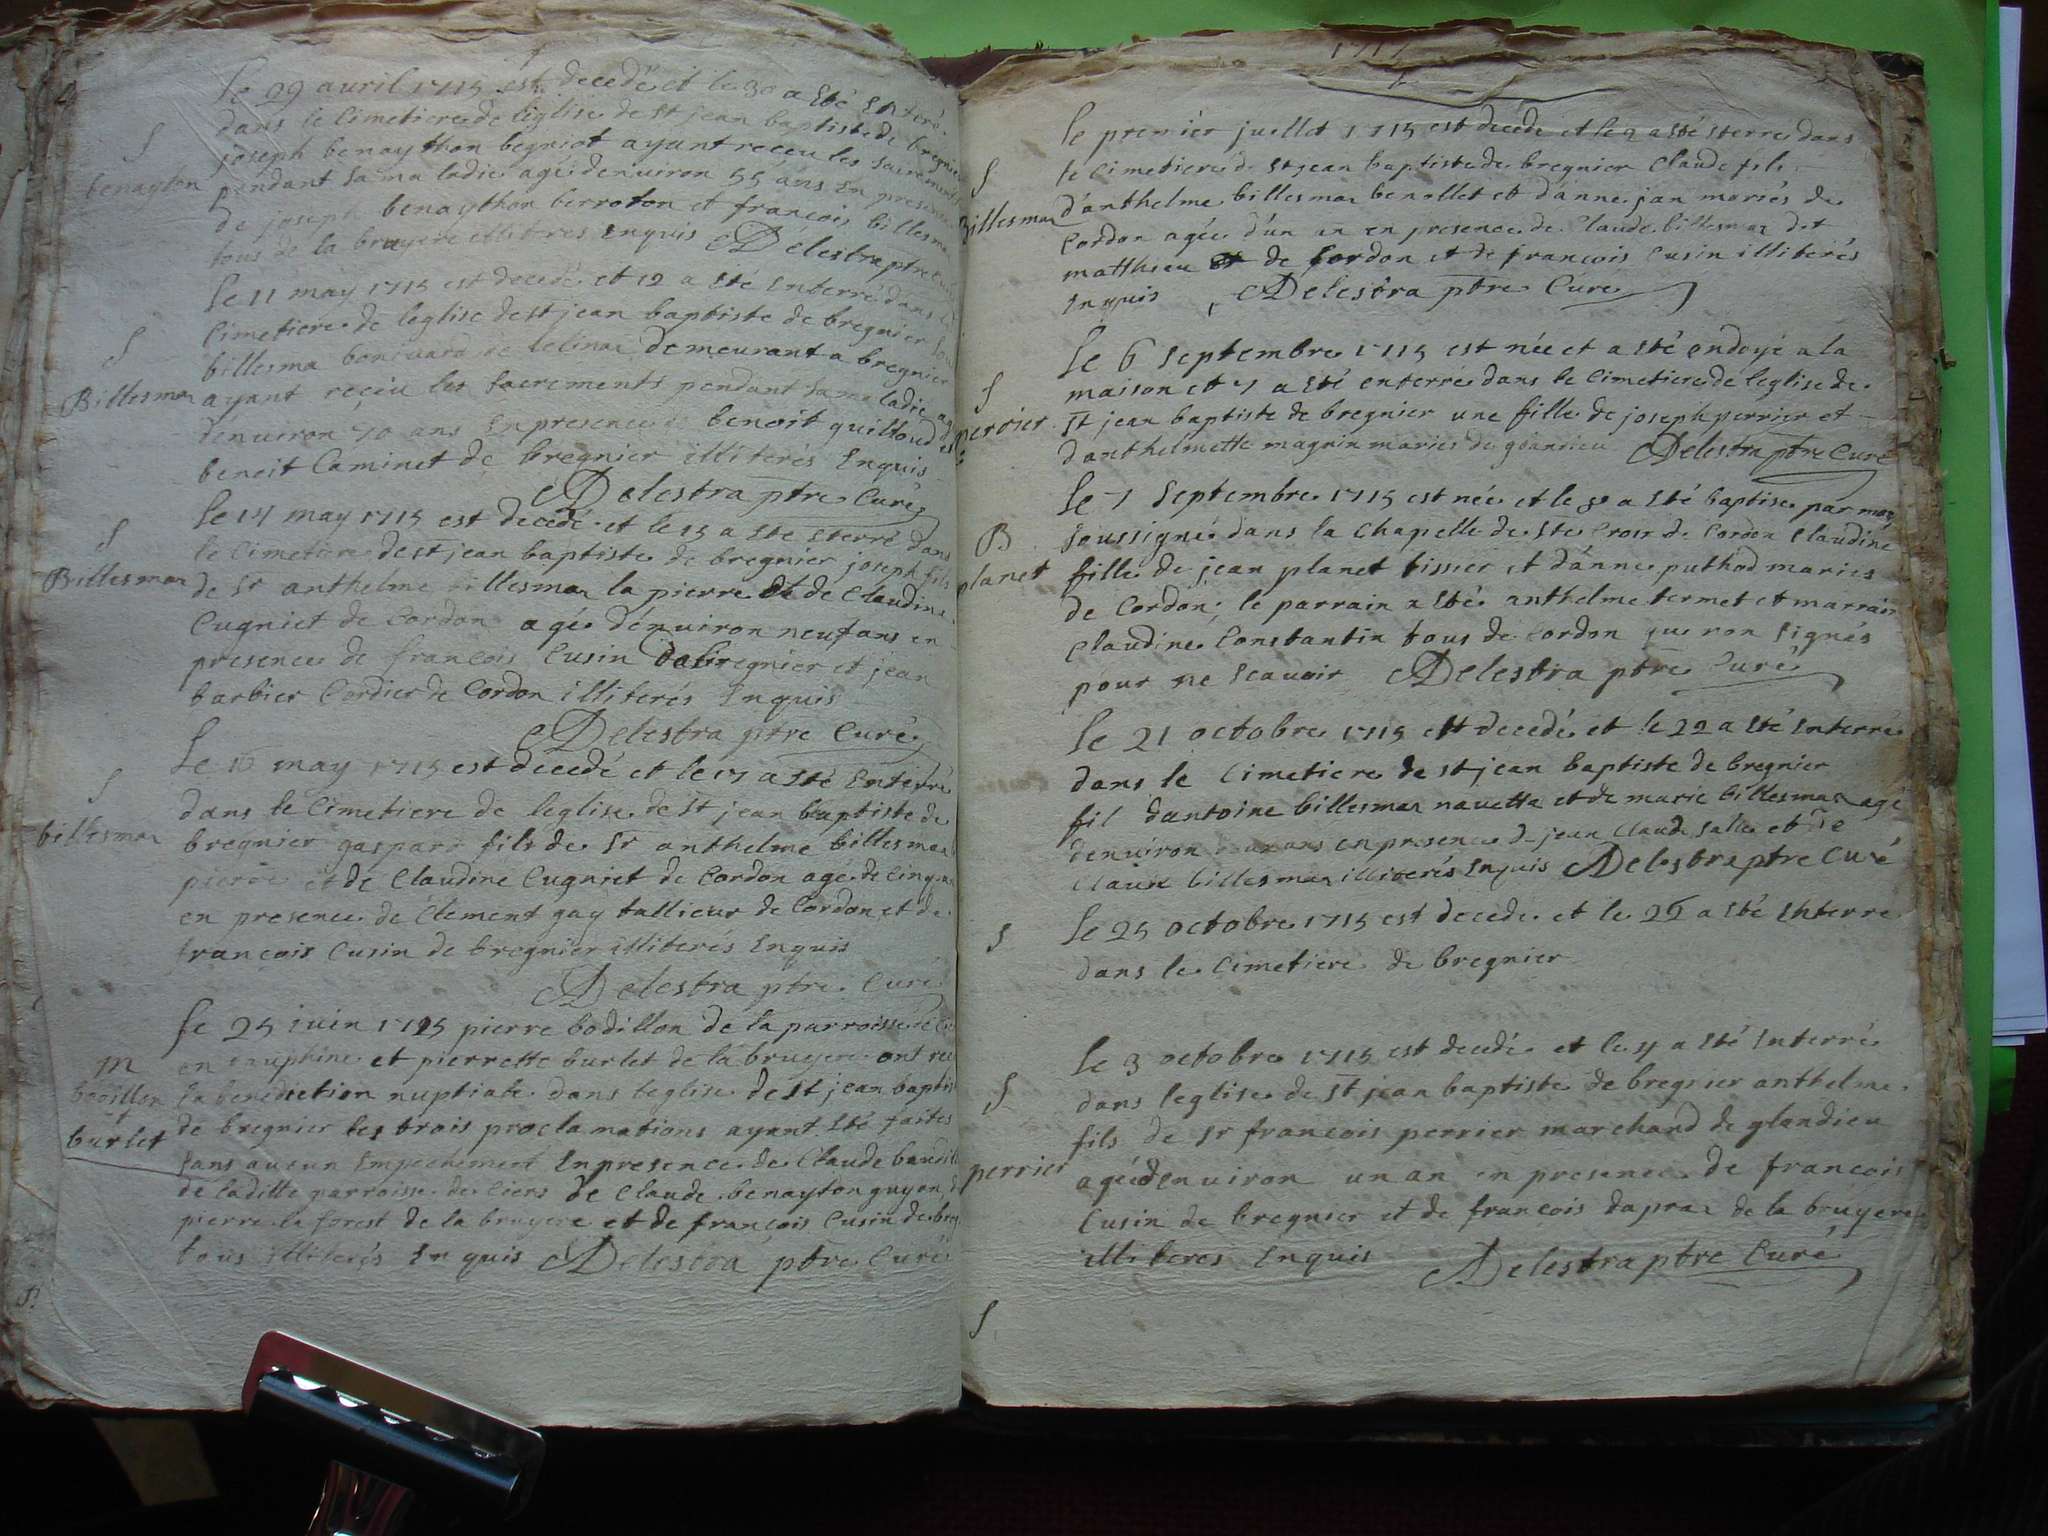 Le 29 avril 1715 est decedé et le 30 a sté enterré
dans le Cimetiere de leglise de st jean baptiste de bregnier
S
joseph benaython begniot ayant receu les sacrements
benayton
pendant sa maladie agé denuiron 55 ans en presence
de joseph benaython berroton et francois billesma
tous de la bruyere illiteres Enquis Delestra ptre Curé
Le 11 may 1715 est decedé et 12 a sté Interré dans le
Cimetiere de leglise de st jean baptiste de bregnier
S
billesma bonivard de demeurant a bregnier
Billesmaz
ayant reçeu les sacrements pendant sa maladie agé
denuiron 70 ans En presence de benoit quilloud et
benoit Caminet de bregnier illiterés Enquis
Delestra ptre Curé
Le 14 may 1715 est decedé et le 15 a sté Eterré dans
S
le Cimetiere de st jean baptiste de bregnier joseph fils
Billesmaz
de Sr anthelme billesmaz la pierre et de Claudine
Cugniet de Cordon agé dénuiron neuf ans en
presence de francois Cusin de bregnier et jean
barbier Cordier de Cordon illiterés Enquis
Delestra ptre Curé
Le 16 may 1715 est decedé et le 17 a sté Enterré
S
dans le Cimetiere de leglise de st jean baptiste de
billesmaz
bregnier gaspard fils de Sr anthelme billesmaz
pierre et de Claudine Cugniet de Cordon agé de Cinq
en presence de Clement gay tallieur de Cordon et de
francois Cusin de bregnier illiterés Enquis
Delestra ptre Curé
Le 25 juin 1715 pierre bodillon de la parroisse
M
en dauphine et pierrette burlet de la bruyere ont receu
bodillon
la benediction nuptiale dans leglise de st jean baptiste
et
burlet
de bregnier les trois proclamations ayant sté faites
sans aucun Empechement En presence de Claude
de laditte parroisse de Ciers de Claude benayton guyon
pierre la forest de la bruyere et de françois Cusin de breg
tous illiterés Enquis Delestra ptre Curé
Le premier juellet 1715 est decedé et le 2 a sté Eterré dans
S
le Cimetiere de st jean baptiste de bregnier Claude fils
Billesmaz
d'anthelme billesmaz benollet et d'anne jan mariés de
Cordon agée d'un an en presence de Claude billesmaz dit
matthieu de Cordon et de francois Cusin illiterés
Enquis Delestra ptre Curé
Le 6 Septembre 1715 est née et a sté endoyé a la
S
maison et 7 a sté enterré dans le Cimetiere de leglise de
perrier
st jean baptiste de bregnier une fille de joseph perrier et
danthelmette magnin mariés de glandieu Delestra ptre Curé
Le 7 Septembre 1715 est née et le 8 a sté baptise par moy
B
soussigné dans la Chapelle de Ste Croix de Cordon Claudine
planet
fille de jean planet tissier et d'anne puthod mariés
de Cordon le parrain a sté anthelme termet et marraine
Claudine Constantin tous de Cordon que non signés
pour ne scauoir Delestra ptre Curé
Le 21 octobre 1715 est decedé et le 22 a sté Interré
dans le Cimetiere de st jean baptiste de bregnier
fil dantoine billesmaz nauetta et de marie billesmaz agé
denuiron ans en presence de jean Claude Salle et de
Claude billesmaz illiterés Enquis Delestra ptre Curé
S
Le 25 octobre 1715 est decedé et le 26 a sté Interré
dans le Cimetiere de bregnier
Le 3 octobre 1715 est decedé et le 4 a sté Interré
S
dans leglise de st jean baptiste de bregnier anthelme
fils de Sr francois perrier marchand de glandieu
perrier
agé denuiron un an en presence de francois
Cusin de bregnier et de francois dupraz de la bruyere
illiteres Enquis Delestra ptre Curé
S